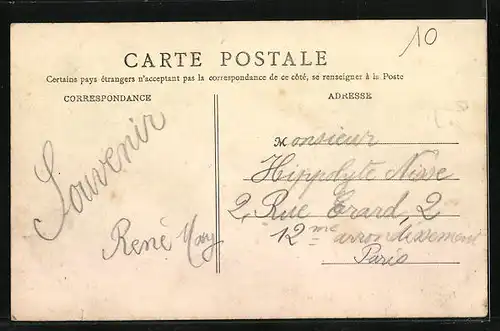 10
CARTE POSTALE
Certains pays étrangers n'acceptant pas la correspondance de ce côté, se renseigner à la Poste
CORRESPONDANCE
Souvenir
René
ADRESSE
Monsieur
Hippolyte Nisse
2, Rue Erard, 2
12me arrondissement
Paris